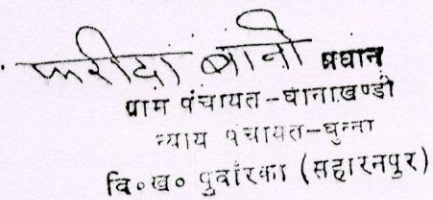 फरीदा बानो प्रधान
ग्राम पंचायत-घानाखण्डी
न्याय पंचायत-घुन्ना
वि०ख० पुवांरका (सहारनपुर)